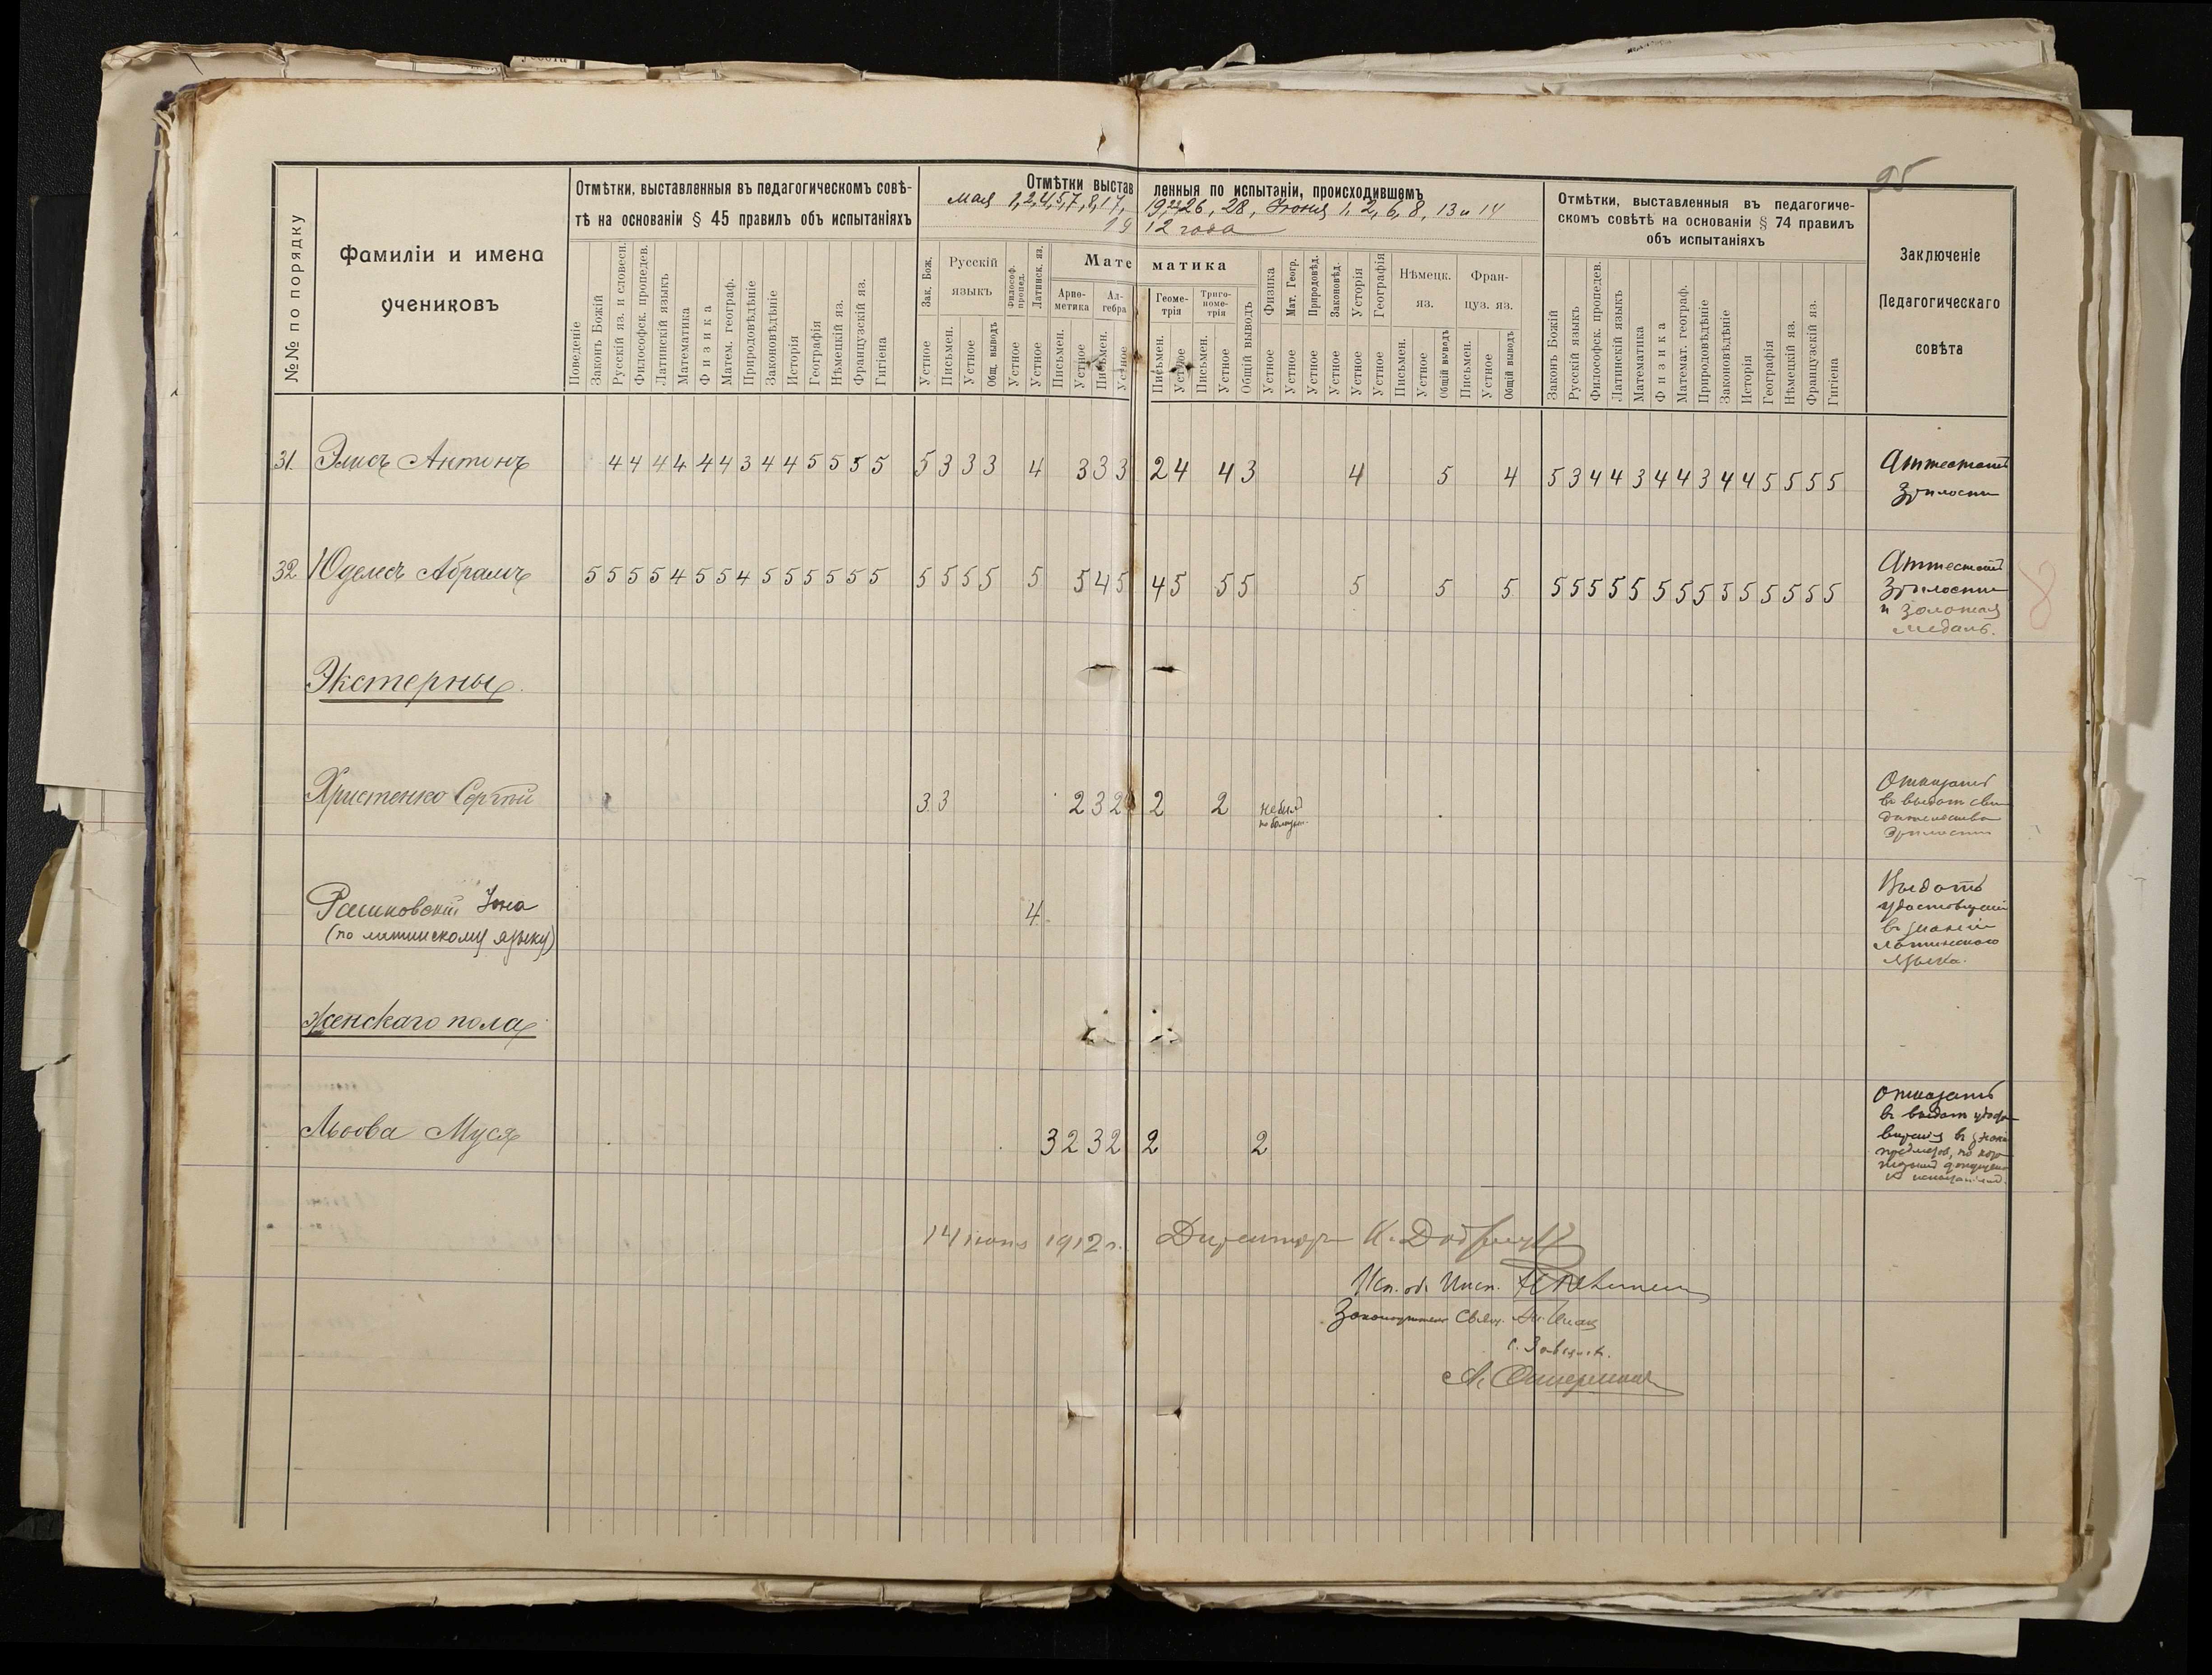 95
№№ по порядку
Фамиліи и имена
учениковъ
Отмѣтки, выставленныя въ педагогическомъ совѣ-
тѣ на основаніи § 45 правилъ объ испытаніяхъ
Поведеніе
Законъ Божій
Русскій яз. и словесн.
Философск. пропедев.
Латинскій языкъ
Математика
Физика
Матем. географ.
Природовѣдѣніе
Законовѣдѣніе
Исторія
Географія
Нѣмецкій яз.
Французскій яз.
Гигіена
Отмѣтки выставленныя по испытаніи, происходившемъ
Мая 1, 2, 4, 5, 7, 8, 17, 19, 22, 26, 28, Іюня 1, 2, 6, 8, 13 и 14
1912 года
Зак. Бож.
Устное
Русскій
языкъ
Письмен.
Устное
Общ. выводъ
Философ. пропед.
Устное
Латинск. яз.
Устное
Математика
Арио-
метика
Письмен.
Устное
Ал-
гебра
Письмен.
Устное
Геоме-
трія
Письмен.
Устное
Триго-
номе-
трія
Письмен.
Устное
Общій выводъ
Физика
Устное
Мат. Геогр.
Устное
Природовѣд.
Устное
Законовѣд.
Устное
Усторія
Устное
Географія
Устное
Нѣмецк.
яз.
Письмен.
Устное
Общій выводъ
Фран-
цуз. яз.
Письмен.
Устное
Общій выводъ
Отмѣтки, выставленныя въ педагогиче-
скомъ совѣтѣ на основаніи § 74 правилъ
объ испытаніяхъ
Законъ Божій
Русскій языкъ
Филоофск. пропедев.
Латинскій языкъ
Математика
Физика
Математ. географ.
Природовѣдѣніе
Законовѣдѣніе
Исторія
Географія
Нѣмецкій яз.
Французскій яз.
Гигіена
Заключеніе
Педагогическаго
совѣта
31. Элисъ Антонъ 4 4 4 4 4 4 3 4 4 5 5 5 5 5 3 3 3 4 3 3 3 2 4 4 3 4 5 4 5 3 4 4 3 4 4 3 4 4 5 5 5 5 Аттестатъ
Зрѣлости
32 Юделесъ Абрамъ 5 5 5 5 4 5 5 4 5 5 5 5 5 5 5 5 5 5 5 5 5 4 5 4 5 5 5 5 5 5 5 5 5 5 5 5 5 5 5 5 5 5 5 5 5 Аттестатъ
Зрѣлости
и золотая
медаль.
8
Экстерны.
Христенко Сергѣй 3 3 2 3 2 2 2 не былъ
по болѣзни. Отказать
въ выдачѣ сви
дѣтельства
зрѣлости
Рашковскій Іона 4
(по латинскому языку)
Выдать
удостовѣреніе
въ знаніи
латинскаго
языка.
Женскаго пола
Львова Муся 3 2 3 2 2 2 Отказать
въ выдачѣ
14 іюня 1912 г. Директоръ К.
Исп. об. Инсп.
Законоучитель Свящ.